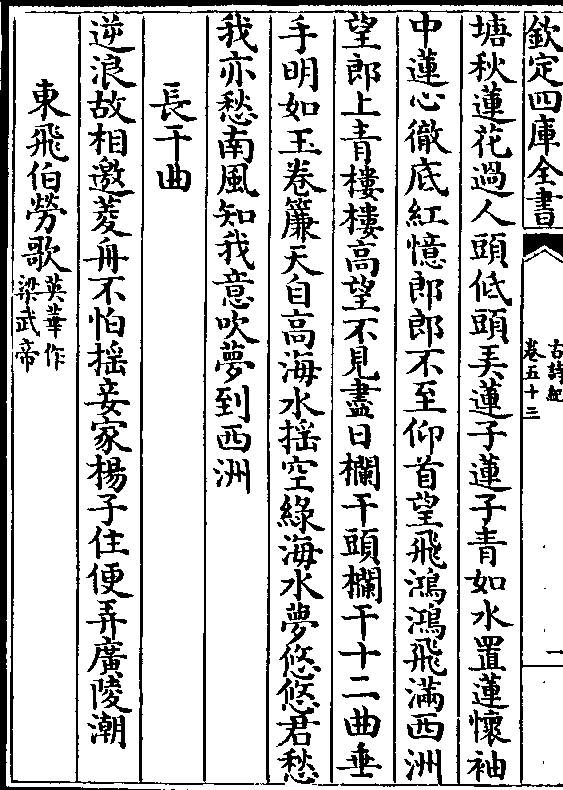 欽定四庫全書
古詩紀
卷五十二
一
塘秋蓮花過人頭低頭弄蓮子蓮子青如水置蓮懷袖
中蓮心徹底紅憶郎郎不至仰首望飛鴻鴻飛滿西洲
望郎上青樓樓高望不見盡日欄干頭欄干十二曲垂
手明如玉卷簾天自高海水揺空綠海水夢悠悠君愁
我亦愁南風知我意吹夢到西洲
長干曲
逆浪故相邀菱舟不怕揺妾家楊子住便弄廣陵潮
東飛伯勞歌英華作
梁武帝